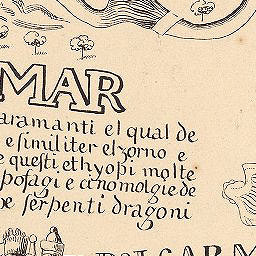 MAR
aramanti el qual de
e similiter elzorno e
e questi ethyopi molte
pofagi e cinomolgie de
e serpenti dragoni